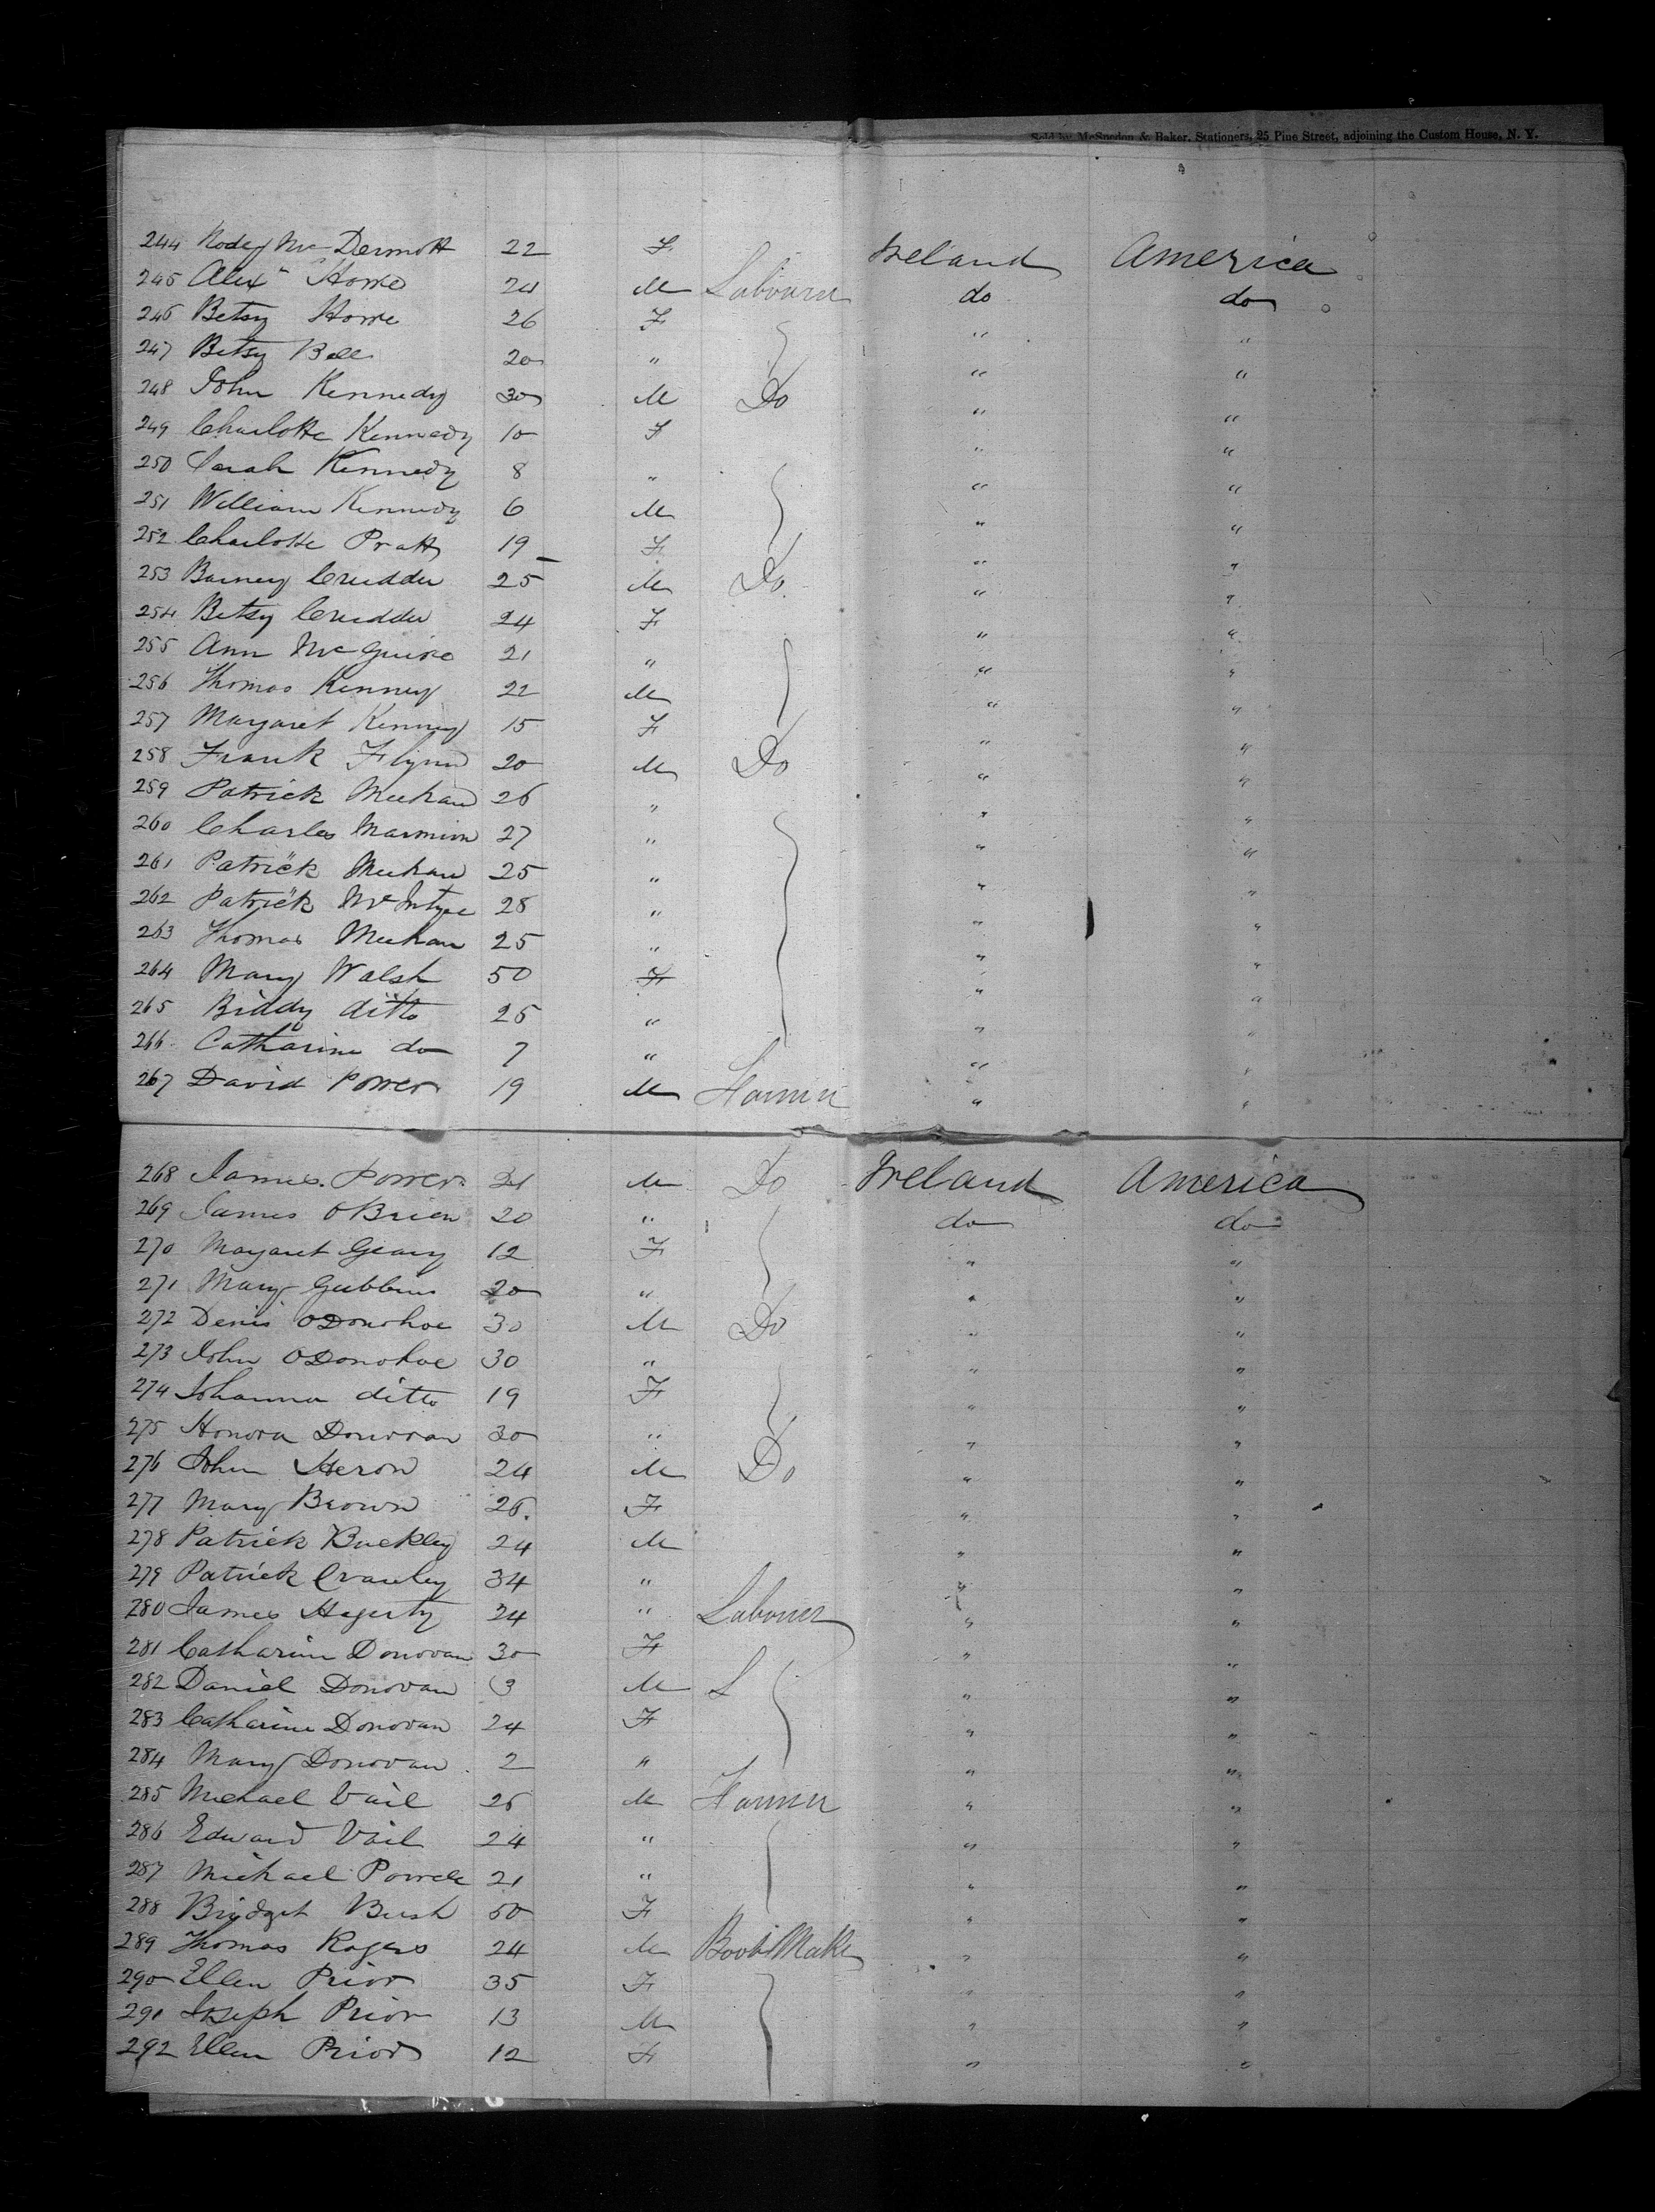 Sold by McSpedon & Baker, Stationers, 25 Pine Street, adjoining the Custom House, N. Y.
244 Rodey McDermott 22 F Ireland America
245 Alexr Howe 24 M Labourer do do
246 Betsy Howe 26 F " "
247 Betsy Bell 20 " " "
248 John Kennedy 30 M Do " "
249 Charlotte Kennedy 10 F " "
250 Sarah Kennedy 8 " " "
251 William Kennedy 6 M " "
252 Charlotte Pratt 19 F " "
253 Barney Crudden 25 M Do " "
254 Betsy Crudden 24 F " "
255 Ann McGuire 21 " " "
256 Thomas Kenney 22 M " "
257 Margaret Kenney 15 F " "
258 Frank Flynn 20 M Do " "
259 Patrick Meehan 26 " " "
260 Charles Marmion 27 " " "
261 Patrick Meehan 25 " " "
262 Patrick McIntyre 28 " " "
263 Thomas Meehan 25 " " "
264 Mary Walsh 50 F " "
265 Biddy ditto 25 " " "
266 Catharine do 7 " " "
267 David Power 19 M Farmer " "
268 James Power 21 M Do Ireland America
269 James OBrien 20 " do do
270 Margaret Geary 12 F " "
271 Mary Gubbins 20 " " "
272 Denis ODonohoe 30 M Do " "
273 John ODonohoe 30 " " "
274 Johanna ditto 19 F " "
275 Honora Donovan 30 " " "
276 John Heron 24 M Do " "
277 Mary Brown 26 F " "
278 Patrick Buckley 24 M " "
279 Patrick Crawley 34 " " "
280 James Hegerty 24 " Labourer " "
281 Catharine Donovan 30 F " "
282 Daniel Donovan 3 M L " "
283 Catharine Donovan 24 F " "
284 Mary Donovan 2 " " "
285 Michael Vail 26 M Farmer " "
286 Edward Vail 24 " " "
287 Michael Powell 21 " " "
288 Bridget Bush 50 F " "
289 Thomas Rogers 24 M Boot Maker " "
290 Ellen Prior 35 F " "
291 Joseph Prior 13 M " "
292 Ellen Prior 12 F " "